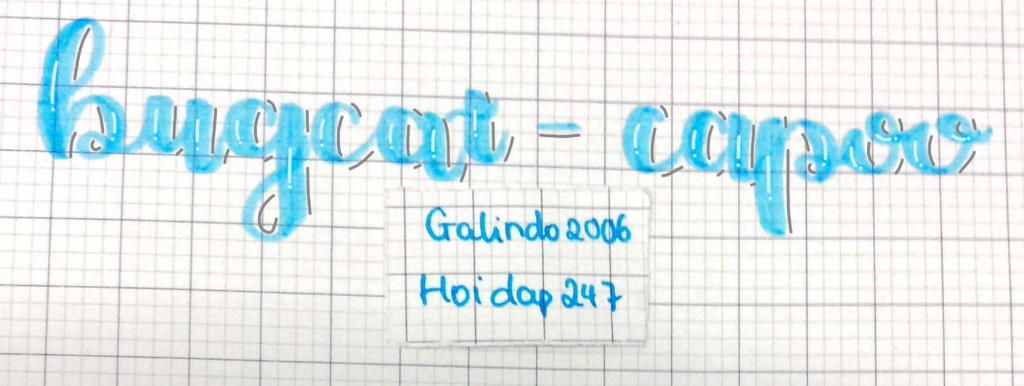 bugcat - capoo
Galindo2006
Hoidap247